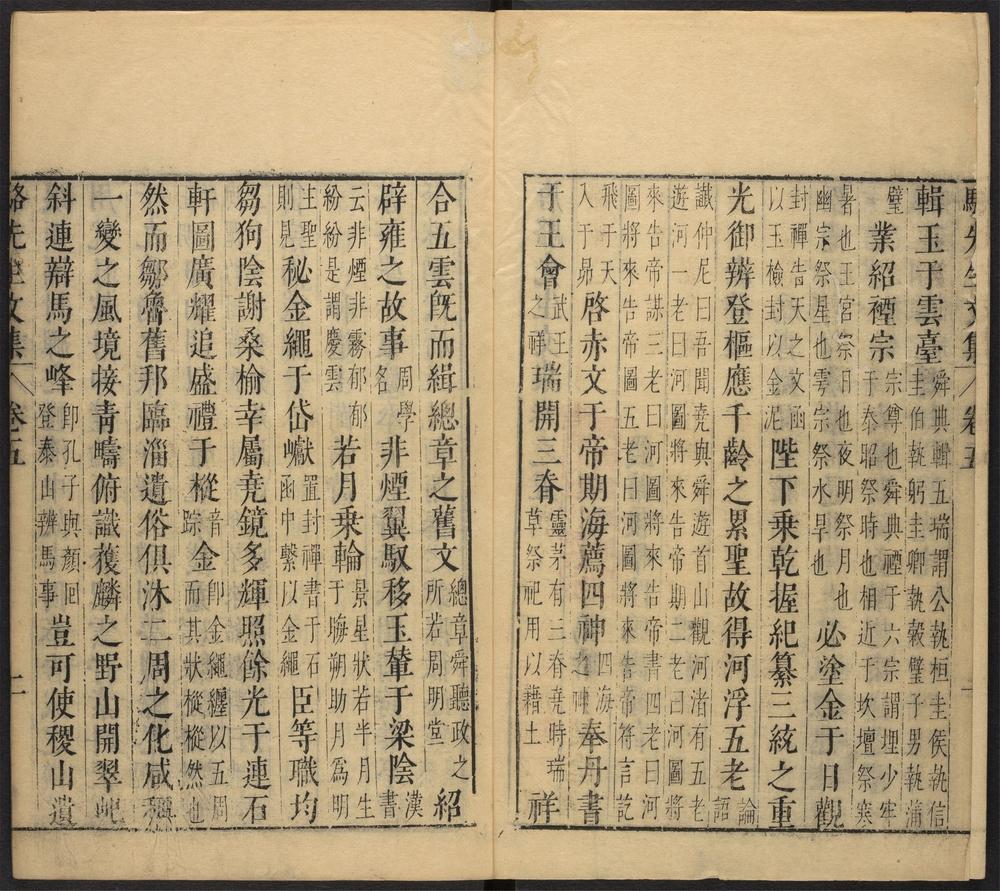 駱先生文集 卷五
輯玉于雲臺
舜典輯五瑞謂公執桓圭侯執信
圭伯執躬圭卿執穀璧子男執蒲
璧
業紹禋宗
宗尊也舜典禋于六宗謂埋少牢
于泰昭祭時也相近于坎壇祭寒
暑也王宮祭日也夜明祭月也
幽宗祭星也雩宗祭水旱也
必塗金于日觀
封禪告天之文函
以玉檢封以金泥
陛下乘乾握紀纂三統之重
光御辨登樞應千齡之累聖故得河浮五老
論
語
讖仲尼曰吾聞堯與舜遊首山觀河渚有五老
遊河一老曰河圖將來告帝期二老曰河圖將
來告帝謀三老曰河圖將來告帝書四老曰河
圖將來告帝圖五老曰河圖將來告帝符言訖
飛于天
入于昴
啓赤文于帝期海薦四神
四海
之神
奉丹書
于王會
武王
之祥
瑞開三脊
靈茅有三脊堯時瑞
草祭祀用以藉土
祥
合五雲旣而緝總章之舊文
總章舜聽政之
所若周明堂
紹
辟雍之故事
周學
名
非煙翼馭移玉輦于梁陰
漢
書
云非煙非霧郁郁
紛紛是謂慶雲
若月乘輪
景星狀若半月生
于晦朔助月爲明
主聖
則見
秘金繩于岱巘
置封禪書于石
函中繫以金繩
臣等職均
芻狗陰謝桑榆幸屬堯鏡多輝照餘光于連石
軒圖廣耀追盛禮于樅
音
踪
金
卽金繩纏以五周
而其狀樅樅然也
然而鄒魯舊邦臨淄遺俗俱沐二周之化咸稱
一變之風境接青疇俯識獲麟之野山開翠屼
斜連辯馬之峰
卽孔子與顏回
登泰山辨馬事
豈可使稷山遺
駱先生文集 卷五 二